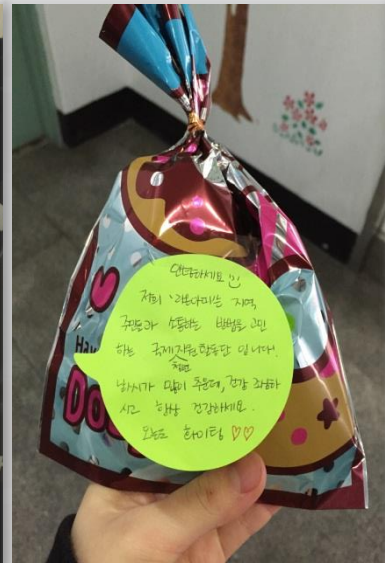 안녕하세요 :)
저희 '라온아띠'는 지역
주민들과 소통하는 방법을 고민
하는 국제자원활동단 입니다.
날씨가 많이 추운데, 건강
시고 항상 건강하세요.
오늘도 화이팅 ♡♡
Ha
Do